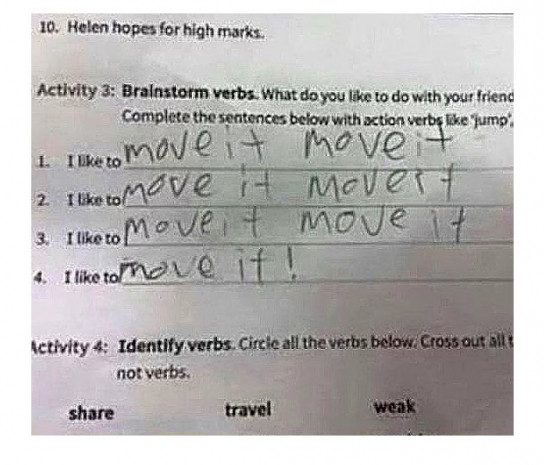 10. Helen hopes for high marks.
Activity 3: Brainstorm verbs. What do you like to do with your friend
Complete the sentences below with action verbs like 'jump',
1. I like to move it move it
2. I like to move it move it
3. I like to move it move it
4. I like to move it!
Activity 4: Identify verbs. Circle all the verbs below. Cross out all t
not verbs.
share travel weak